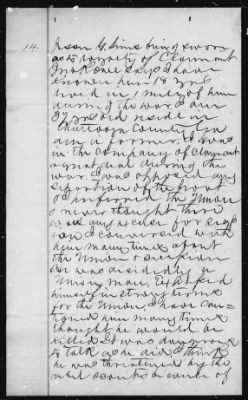 14.
G. Sims being sworn
as to loyalty of Claimant
says I have
known him 18 yrs
lived in 1 mile of him
during the war. I am
37 yrs old reside in
Chattooga County Ga
am a farmer. I was
in the company of claimant
a great deal during the
war. I was opposed any
separation of the
I preferred the Union
I never thought there
was any
I conversed with
him many times about
the Union & secession
He was decidedly a
Union man, Expressed
himself in strong terms
for the Union. I have
him many times
thought he would be
killed. It was dangerous
to talk as he did. I think
he was threatened by the
rebel scouts a number of